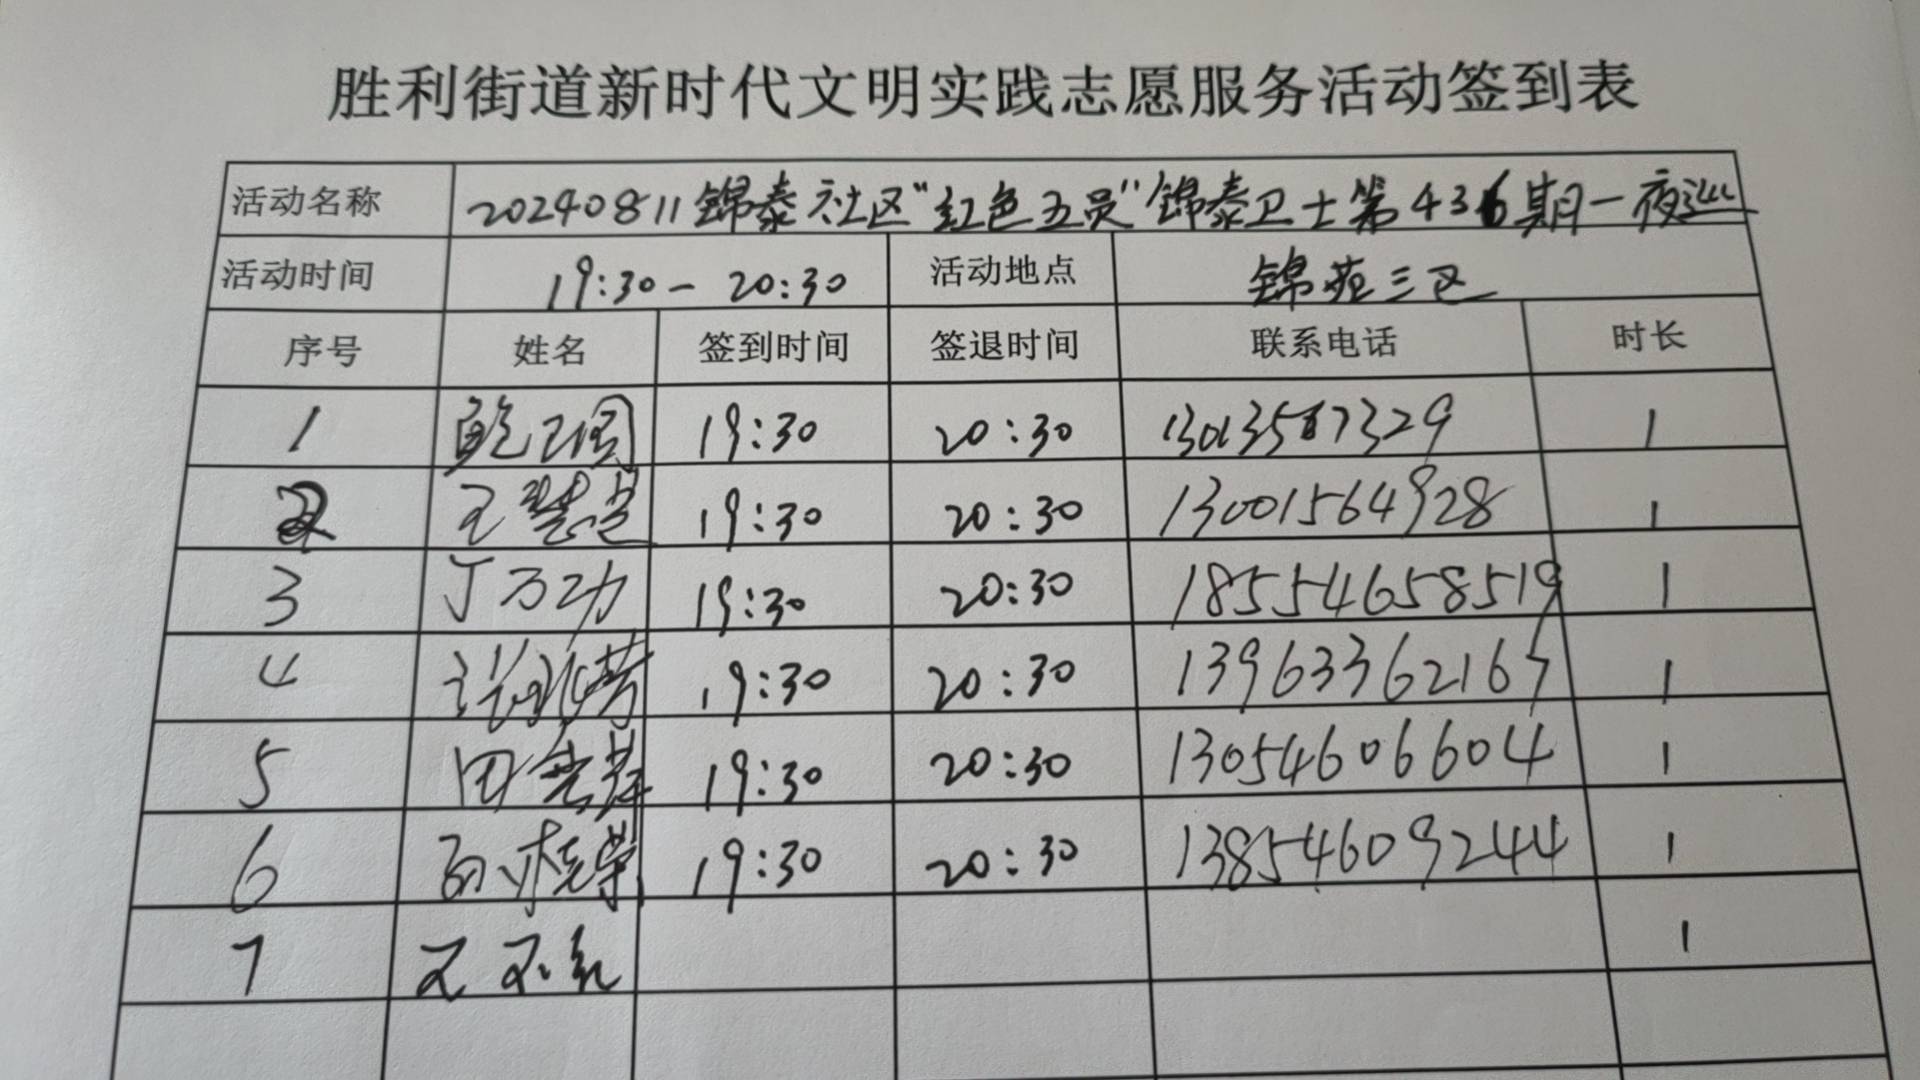 胜利街道新时代文明实践志愿服务活动签到表
活动名称 20240811锦泰社区“红色五员”锦泰卫士第436期一夜巡
活动时间 19:30-20:30 活动地点 锦苑三区
序号 姓名 签到时间 签退时间 联系电话 时长
1 19:30 20:30 1
2 王楚兰 19:30 20:30 13001564928 1
3 丁万功 19:30 20:30 18554658519 1
4 19:30 20:30 13963362165 1
5 田 19:30 20:30 13054606604 1
6 19:30 20:30 13854609244 1
7 王 1